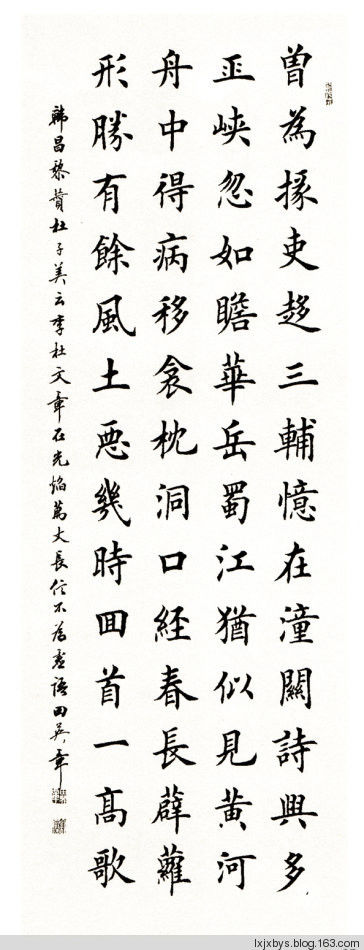 曾為掾吏趍三輔憶在潼關詩興多
巫峽忽如瞻華岳蜀江猶似見黄河
舟中得病移衾枕洞口經春長薜蘿
形勝有餘風土惡幾時回首一高歌
韓昌黎贊杜子美云李杜文章在光焰萬丈長信不為虛語田英章
lxjxbys.blog.163.com